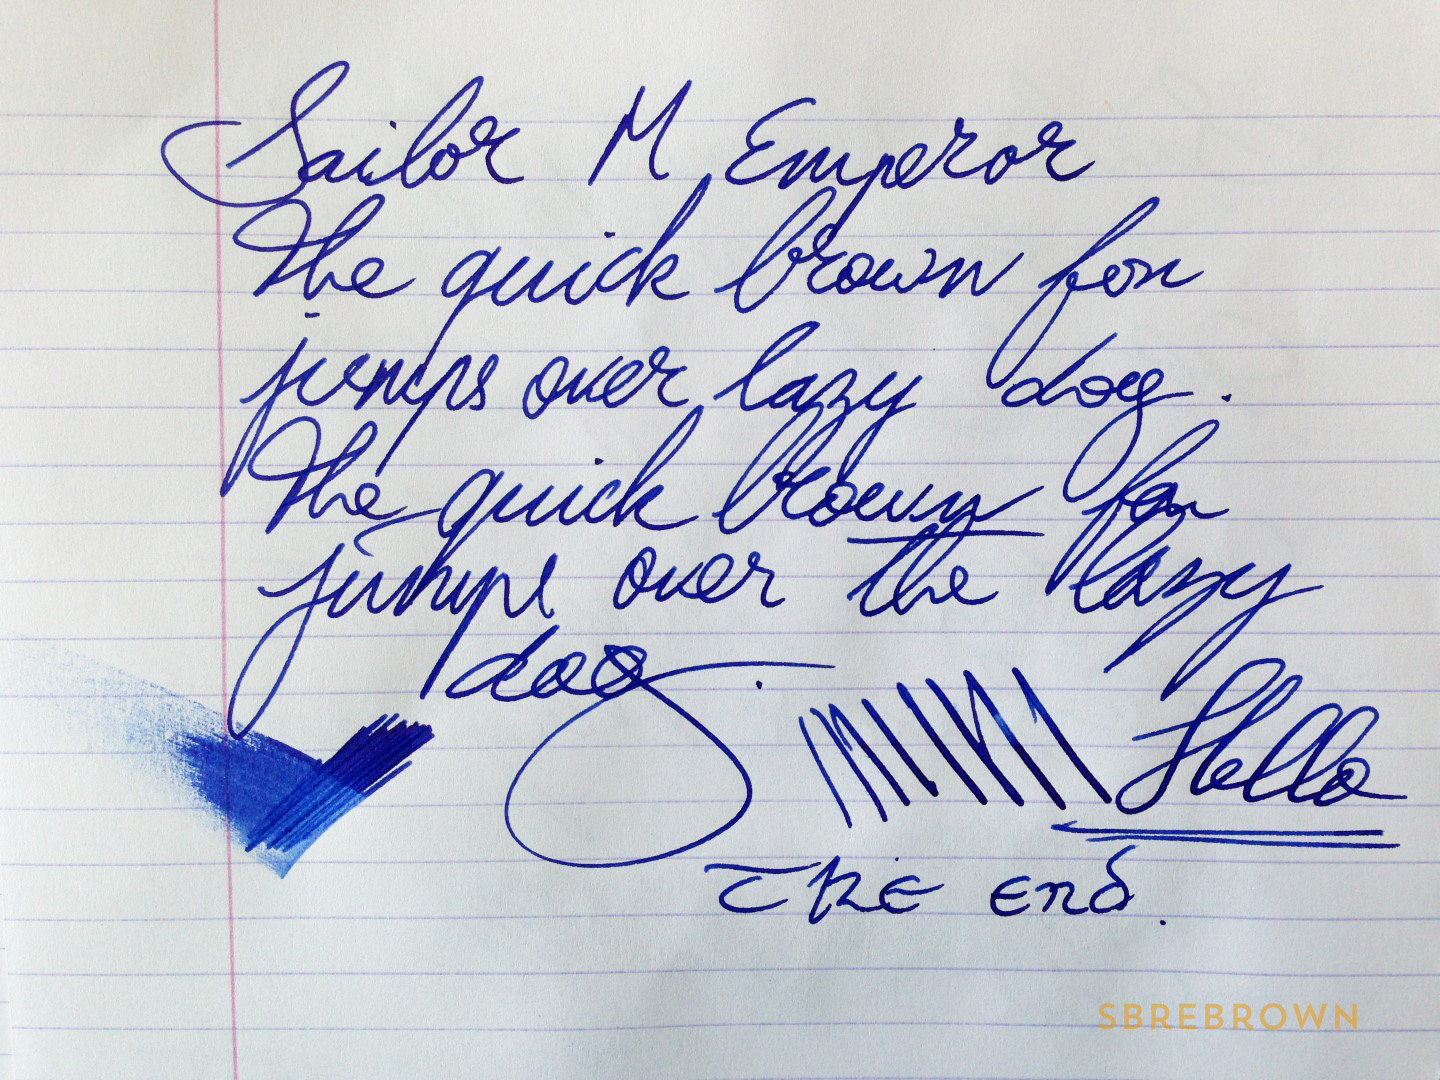 Sailor M Emperor
The quick brown fox
jumps over lazy dog.
The quick brown fox
jumps over the lazy
dog.
Hello
The end.
SBREBROWN